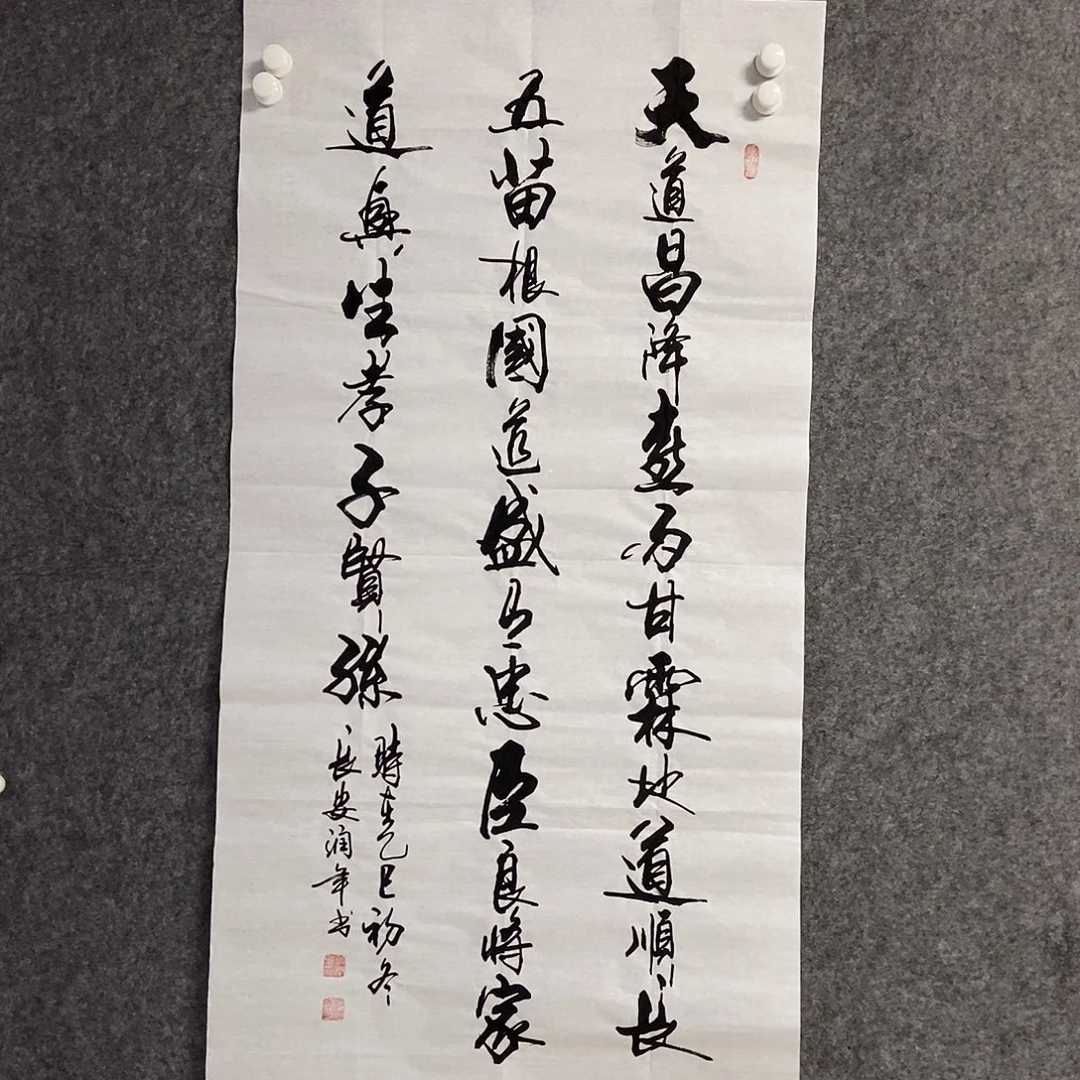 天道昌降雨甘霖地道順長
五苗根國道盛出忠臣良將家
道興生孝子賢孫
時在乙巳初冬
長安潤年书